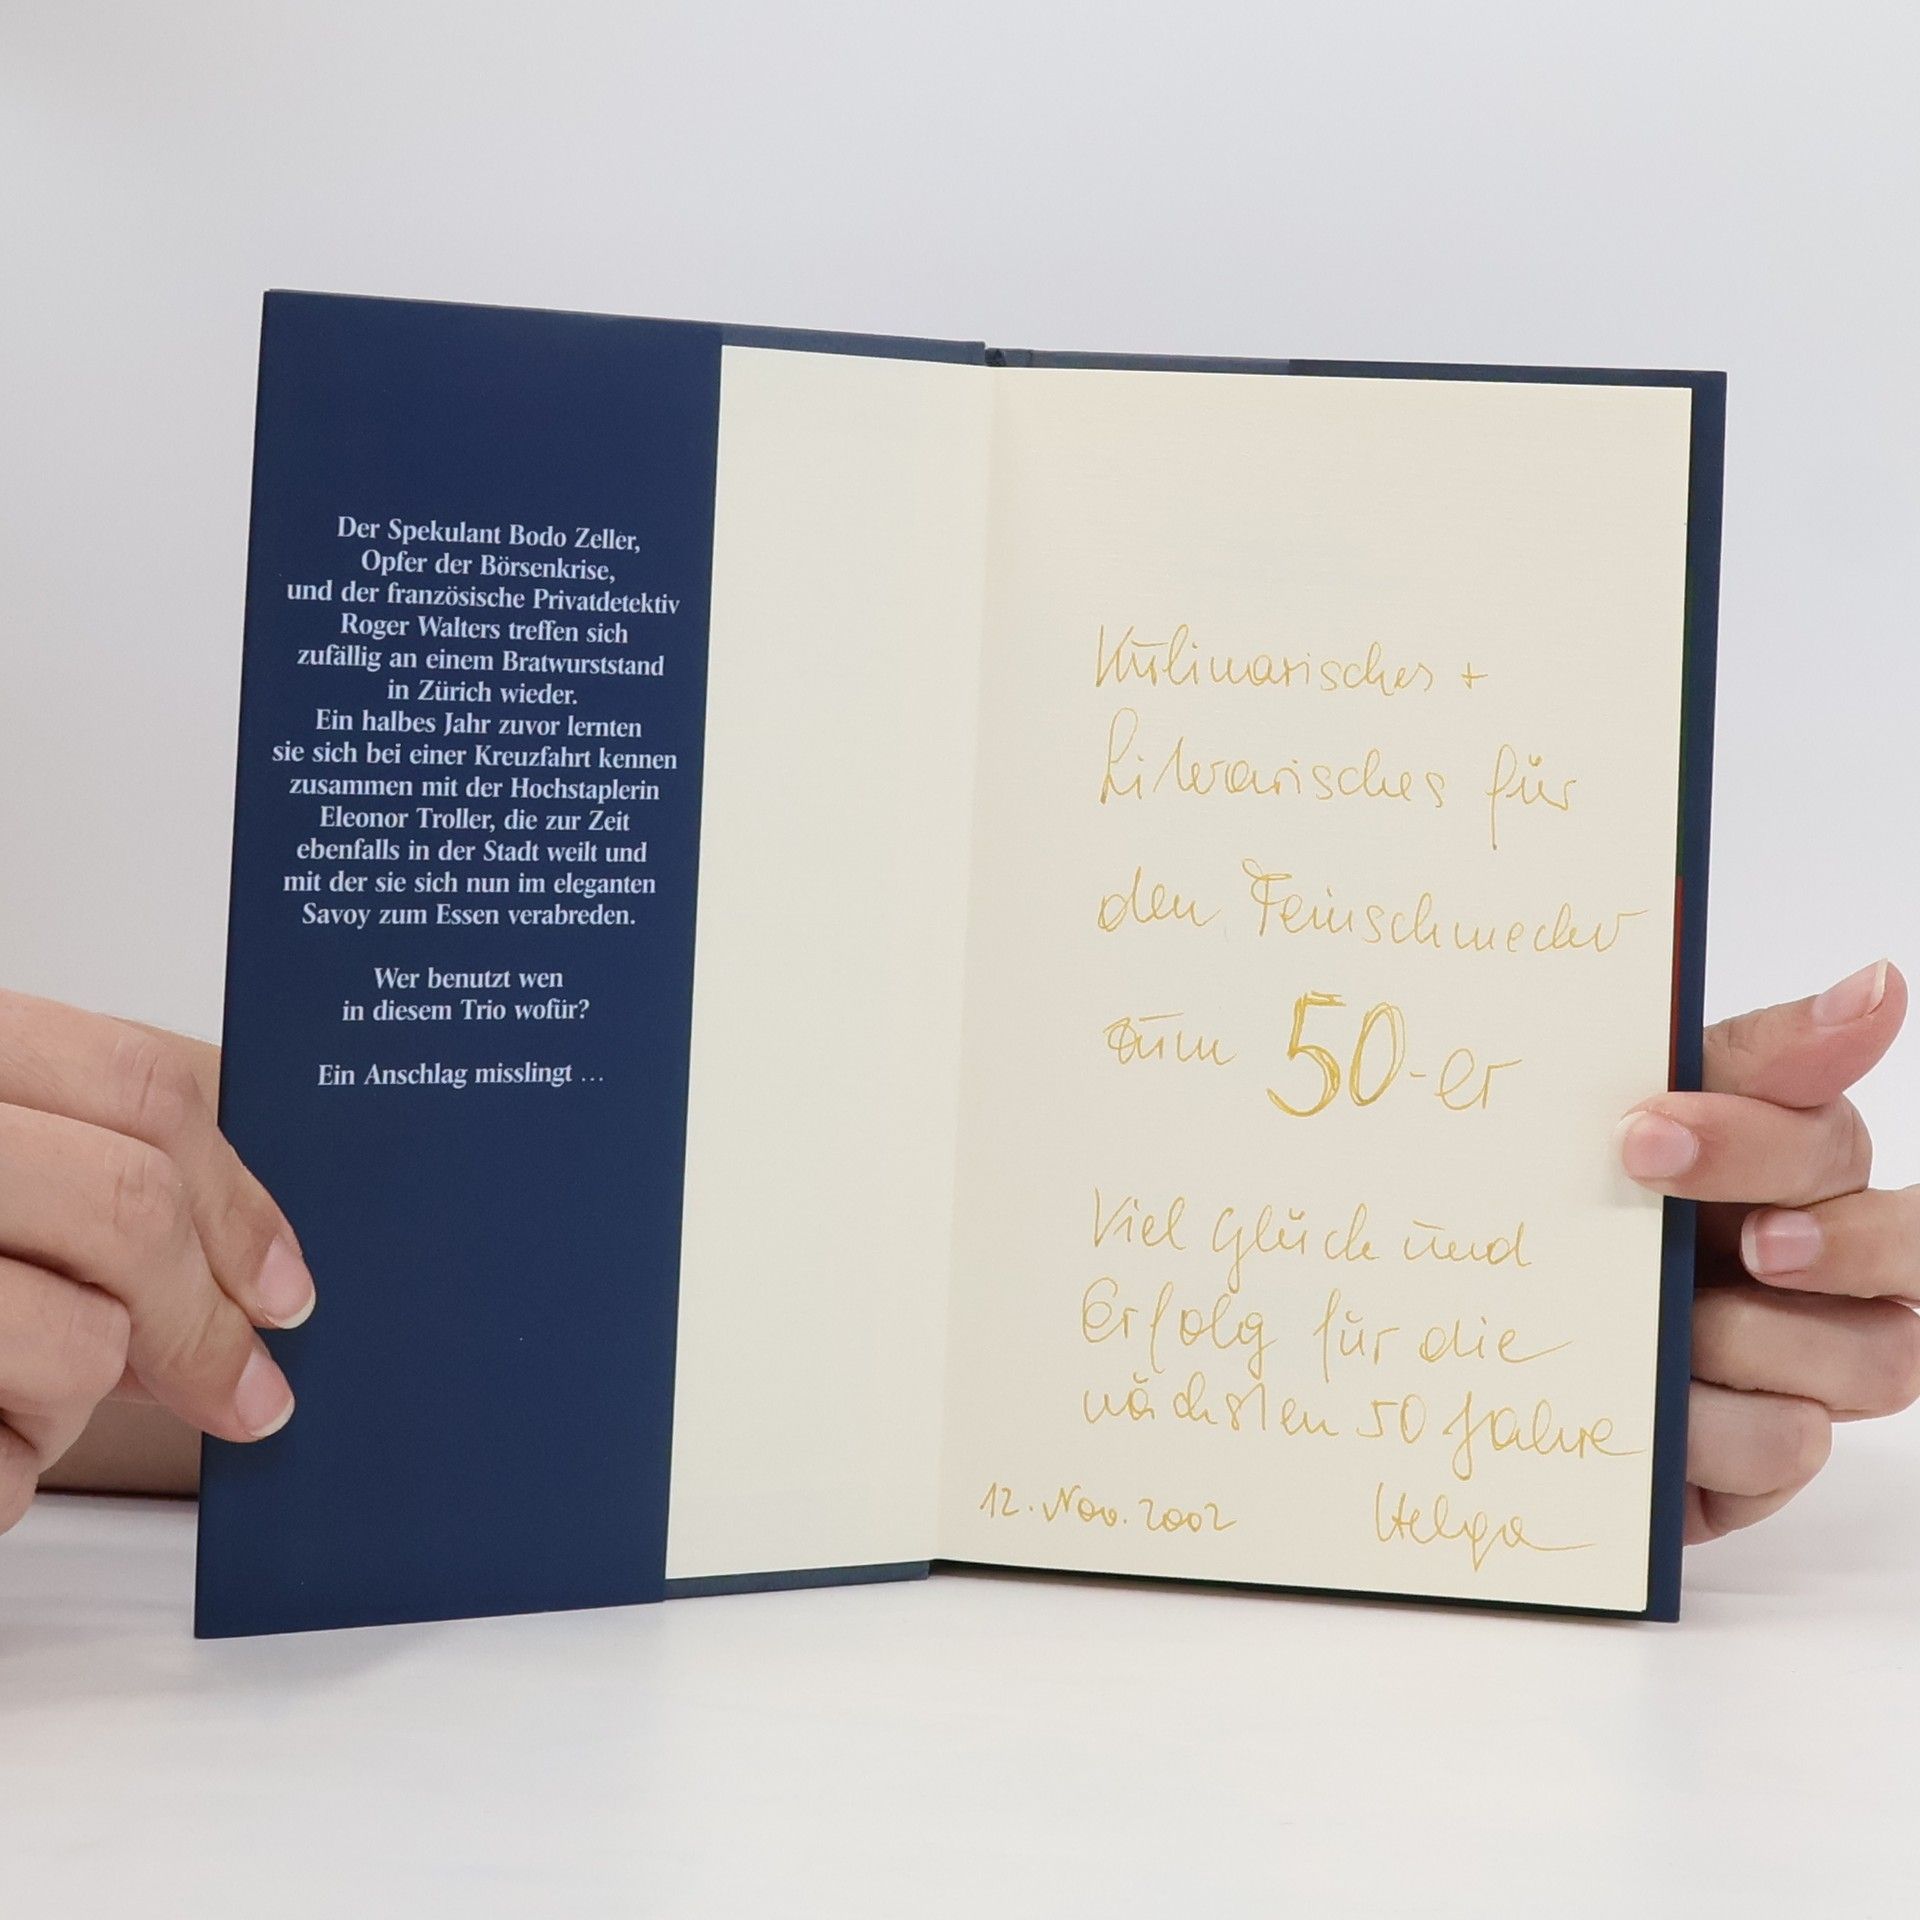 Der Spekulant Bodo Zeller,
Opfer der Börsenkrise,
und der französische Privatdetektiv
Roger Walters treffen sich
zufällig an einem Bratwurststand
in Zürich wieder.
Ein halbes Jahr zuvor lernten
sie sich bei einer Kreuzfahrt kennen
zusammen mit der Hochstaplerin
Eleonor Troller, die zur Zeit
ebenfalls in der Stadt weilt und
mit der sie sich nun im eleganten
Savoy zum Essen verabreden.
Wer benutzt wen
in diesem Trio wofür?
Ein Anschlag misslingt ...
Kulinarisches +
Literarisches für
den Feinschmecker
zum 50-er
Viel Glück und
Erfolg für die
nächsten 50 Jahre
12. Nov. 2002 Helga